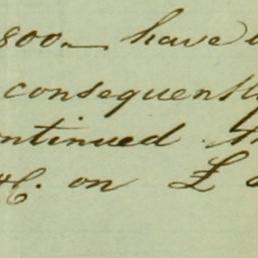 800— have
consequently
ontinued th
&C. on £